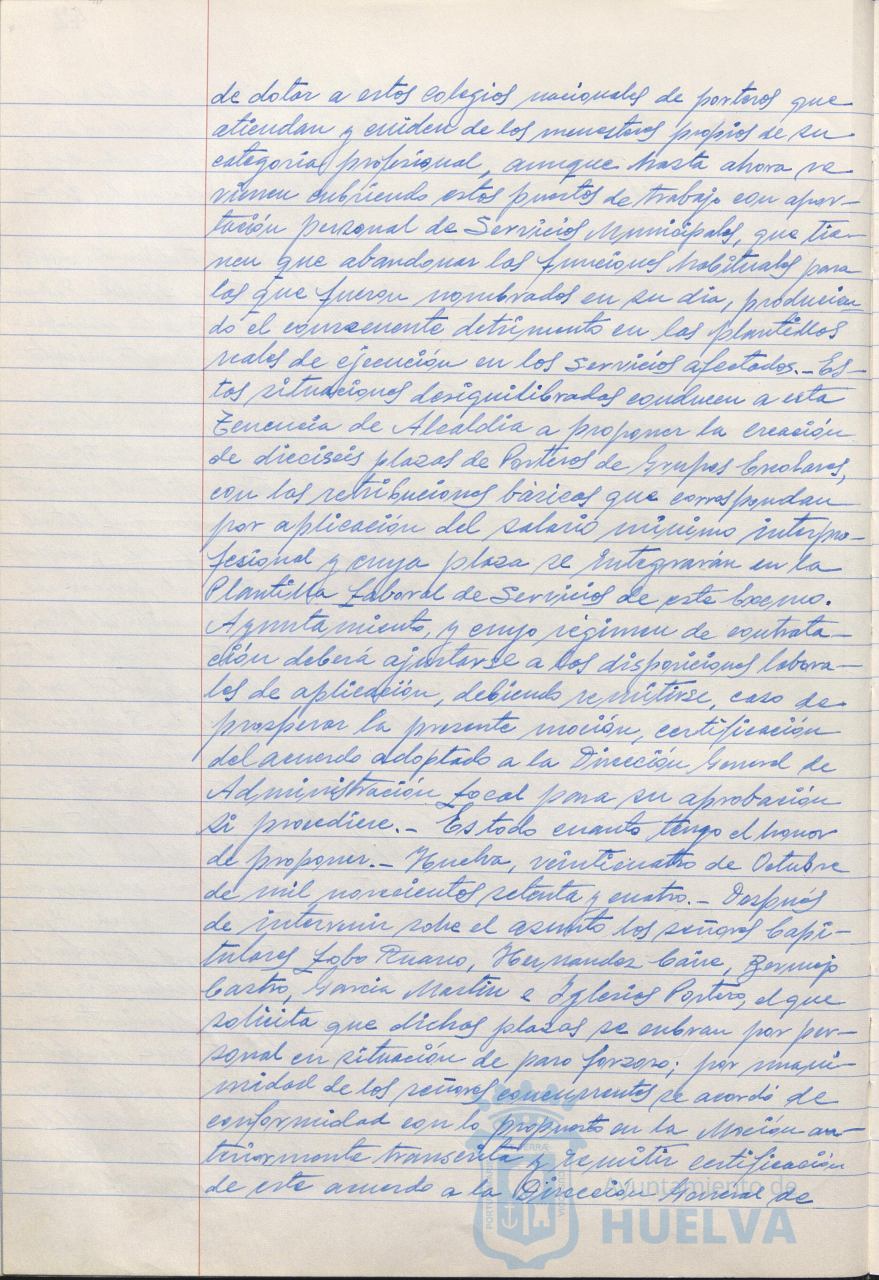 de dotar a estos colegios nacionales de porteros que
atiendan y cuiden de los menesteres propios de su
categoria profesional, aunque hasta ahora se
vienen cubriendo estos puestos de trabajo con apor-
tación personal de Servicios Municipales, que tie-
nen que abandonar las funciones habituales para
las que fueron nombrados en su dia, producien-
do el consecuente detrimento en las plantillas
reales de ejecución en los servicios afectados.- Es-
tas situaciones desiquilibradas conducen a esta
Tenencia de Alcaldia a proponer la creación
de dieciseis plazas de Porteros de Grupos Escolares,
con las retribuciones básicas que correspondan
por aplicación del salario minimo interpro-
fesional y cuya plaza se integrarán en la
Plantilla Laboral de Servicios de este Excmo.
Ayuntamiento, y cuyo régimen de contrata-
ción deberá ajustarse a las disposiciones labora-
les de aplicación, debiendo remitirse, caso de
prosperar la presente moción, certificación
del acuerdo adoptado a la Dirección General de
Administración Local para su aprobación
si procediere.- Es todo cuanto tengo el honor
de proponer.- Huelva, veinticuatro de Octubre
de mil novecientos setenta y cuatro.- Después
de intervenir sobre el asunto los señores Capi-
tulares Lobo Ruano, Hernandez Cañe, Bermejo
Castro, Garcia Martin e Iglesias Portero, el que
solicita que dichas plazas se cubran por per-
sonal en situación de paro forzoso; por unani-
midad de los señores concurrentes se acordó de
conformidad con lo propuesto en la Moción an-
teriormente transcrita y remitir certificación
de este acuerdo a la Dirección General de
Ayuntamiento de
HUELVA